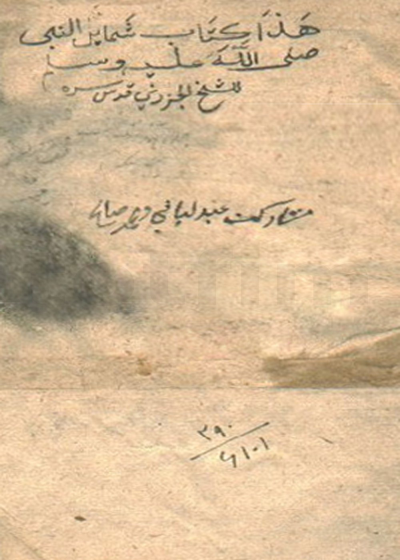 هذا كتاب شمايل النبي
صلى الله عليه وسلم
للشيخ الجزري قدس سره
عبد الباقي
٣٩٠